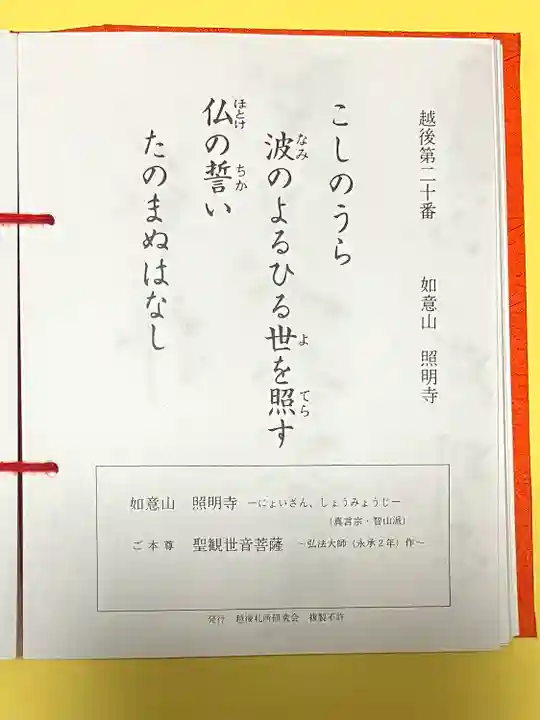 越後第二十番　如意山　照明寺
こしのうら
波のよるひる世を照す
なみ
よ
てら
仏の誓い
ほとけ
ちか
たのまぬはなし
如意山　照明寺 ーにょいざん、しょうみょうじー
（真言宗・智山派）
ご本尊　聖観世音菩薩　～弘法大師（永承２年）作～
発行　越後札所研究会　複製不許